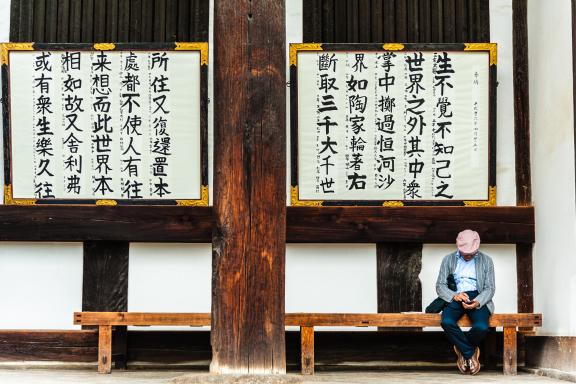 奉納
生不覺不知己之
世界之外其中衆
掌中擲過恒河沙
界如陶家輪著右
斷取三千大千世
所住又復還置本
處都不使人有往
来想而此世界本
相如故又舍利弗
或有衆生樂久往